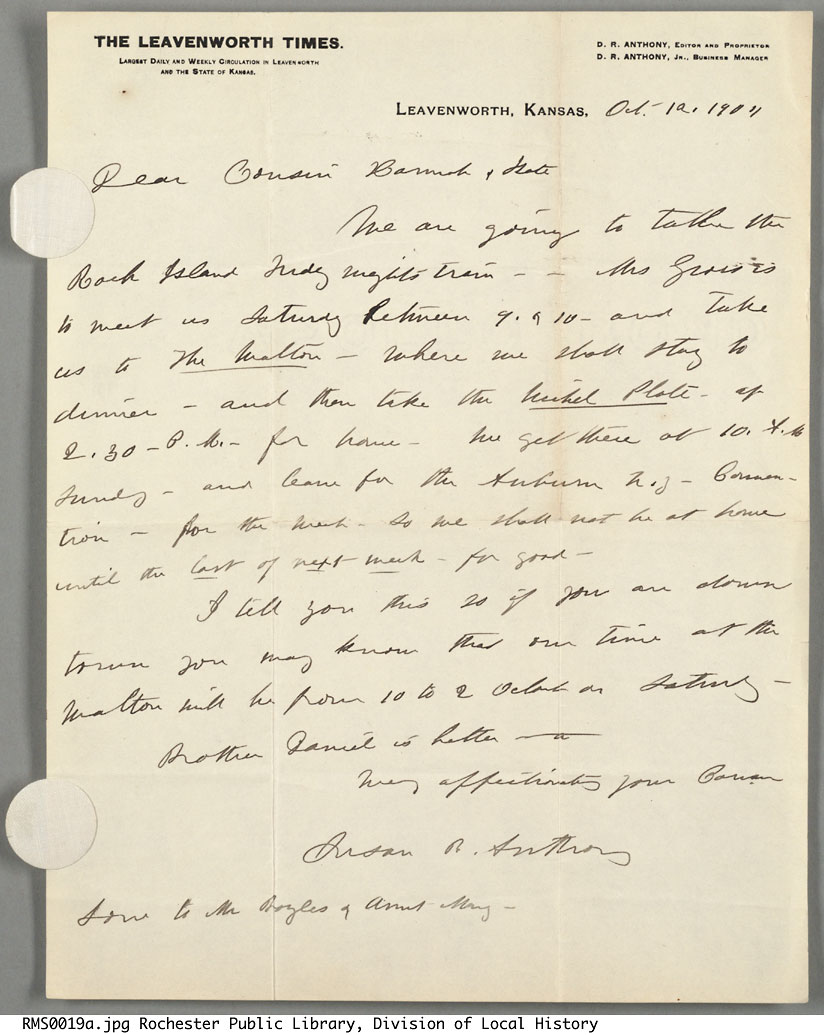 THE LEAVENWORTH TIMES.
LARGEST DAILY AND WEEKLY CIRCULATION IN LEAVENWORTH
AND THE STATE OF KANSAS.
D. R. ANTHONY, EDITOR AND PROPRIETOR
D. R. ANTHONY, JR., BUSINESS MANAGER
LEAVENWORTH, KANSAS, Oct. 1904
Dear Cousin &
We are going to take the
Rock Island Friday nights train - - Mrs Gross is
to meet us Saturday between 9. & 10 - and take
us to The Walton - where we shall stay to
dinner - and then take the Nickel Plate - at
2.30 - P. M. - for home - We get there at 10. A. M
Sunday - and leave for the Auburn N.Y - Conven-
tion - for the week - so we shall not be at home
until the last of next week - for good -
I tell you this so if you are down
town you may know that our time at the
Walton will be from 10 to 2 Oclock on Saturday -
Brother Daniel is better - a
Very affectionately your Cousin
Susan B. Anthony
Love to Mr Boyles & Aunt Mary -
RMS0019a.jpg Rochester Public Library, Division of Local History